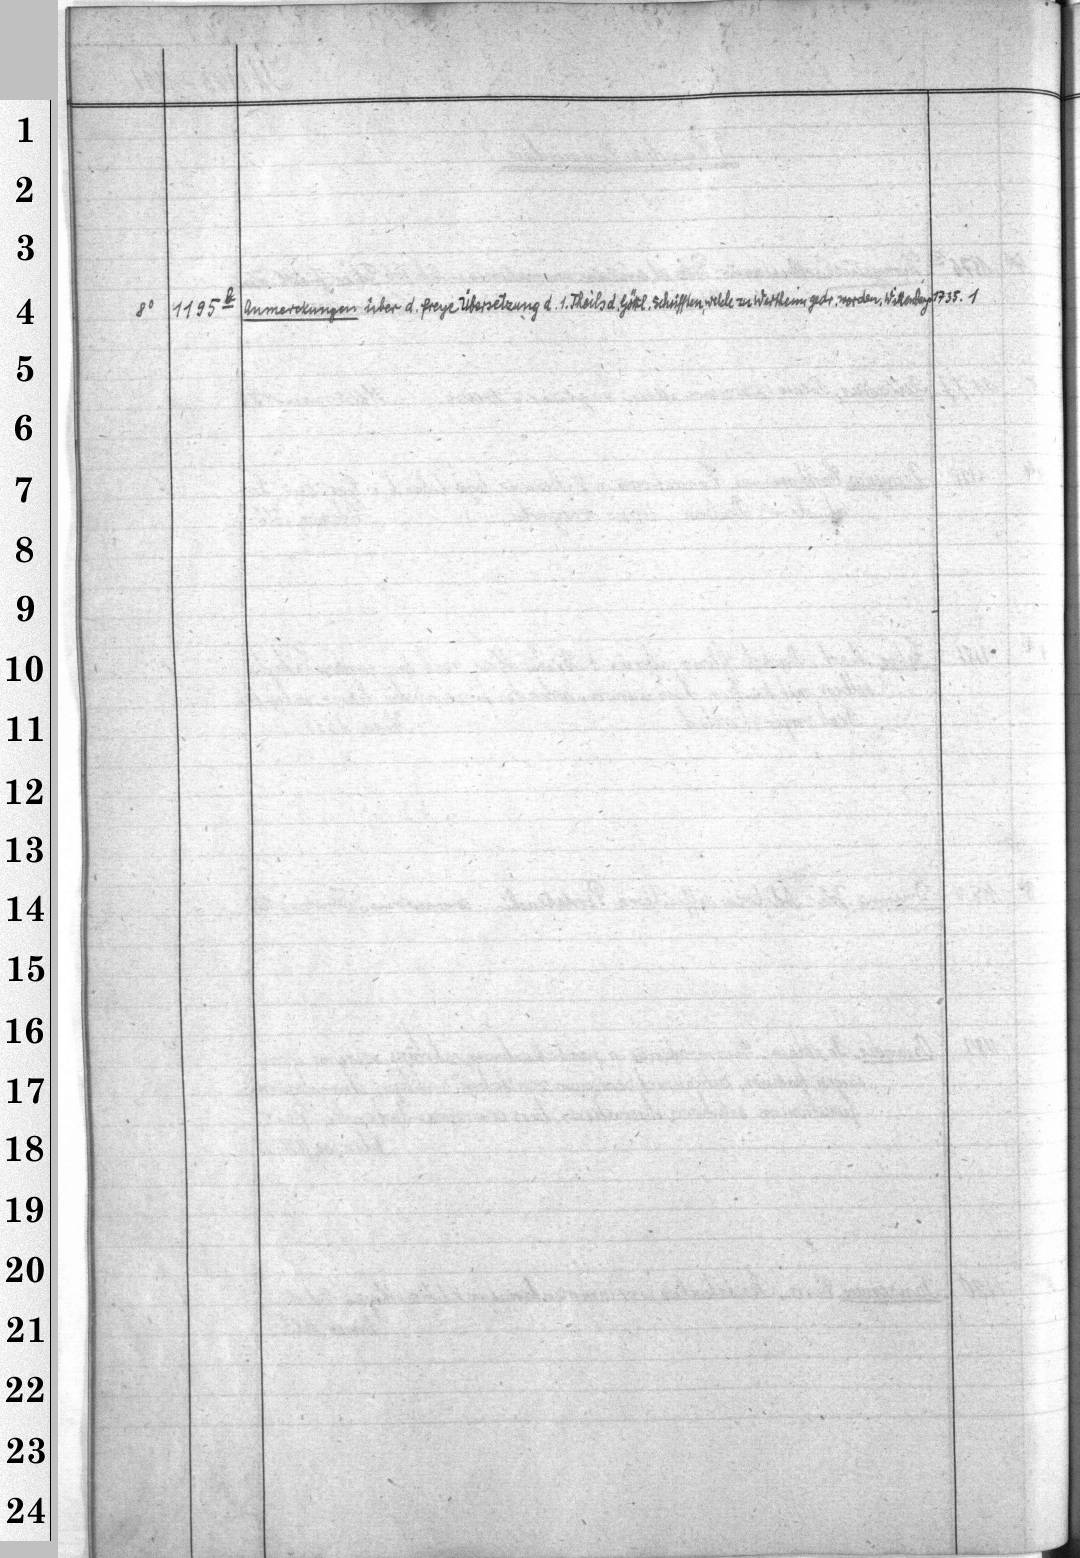 1
2
3
4 8° 1195 Anmerckungen über d. freye Übersetzung d. 1. Theils d. Göttl. Schrifften, welche zu Wertheim gedr. worden. Wittenberg 1735. 1
5
6
7
8
9
10
11
12
13
14
15
16
17
18
19
20
21
22
23
24